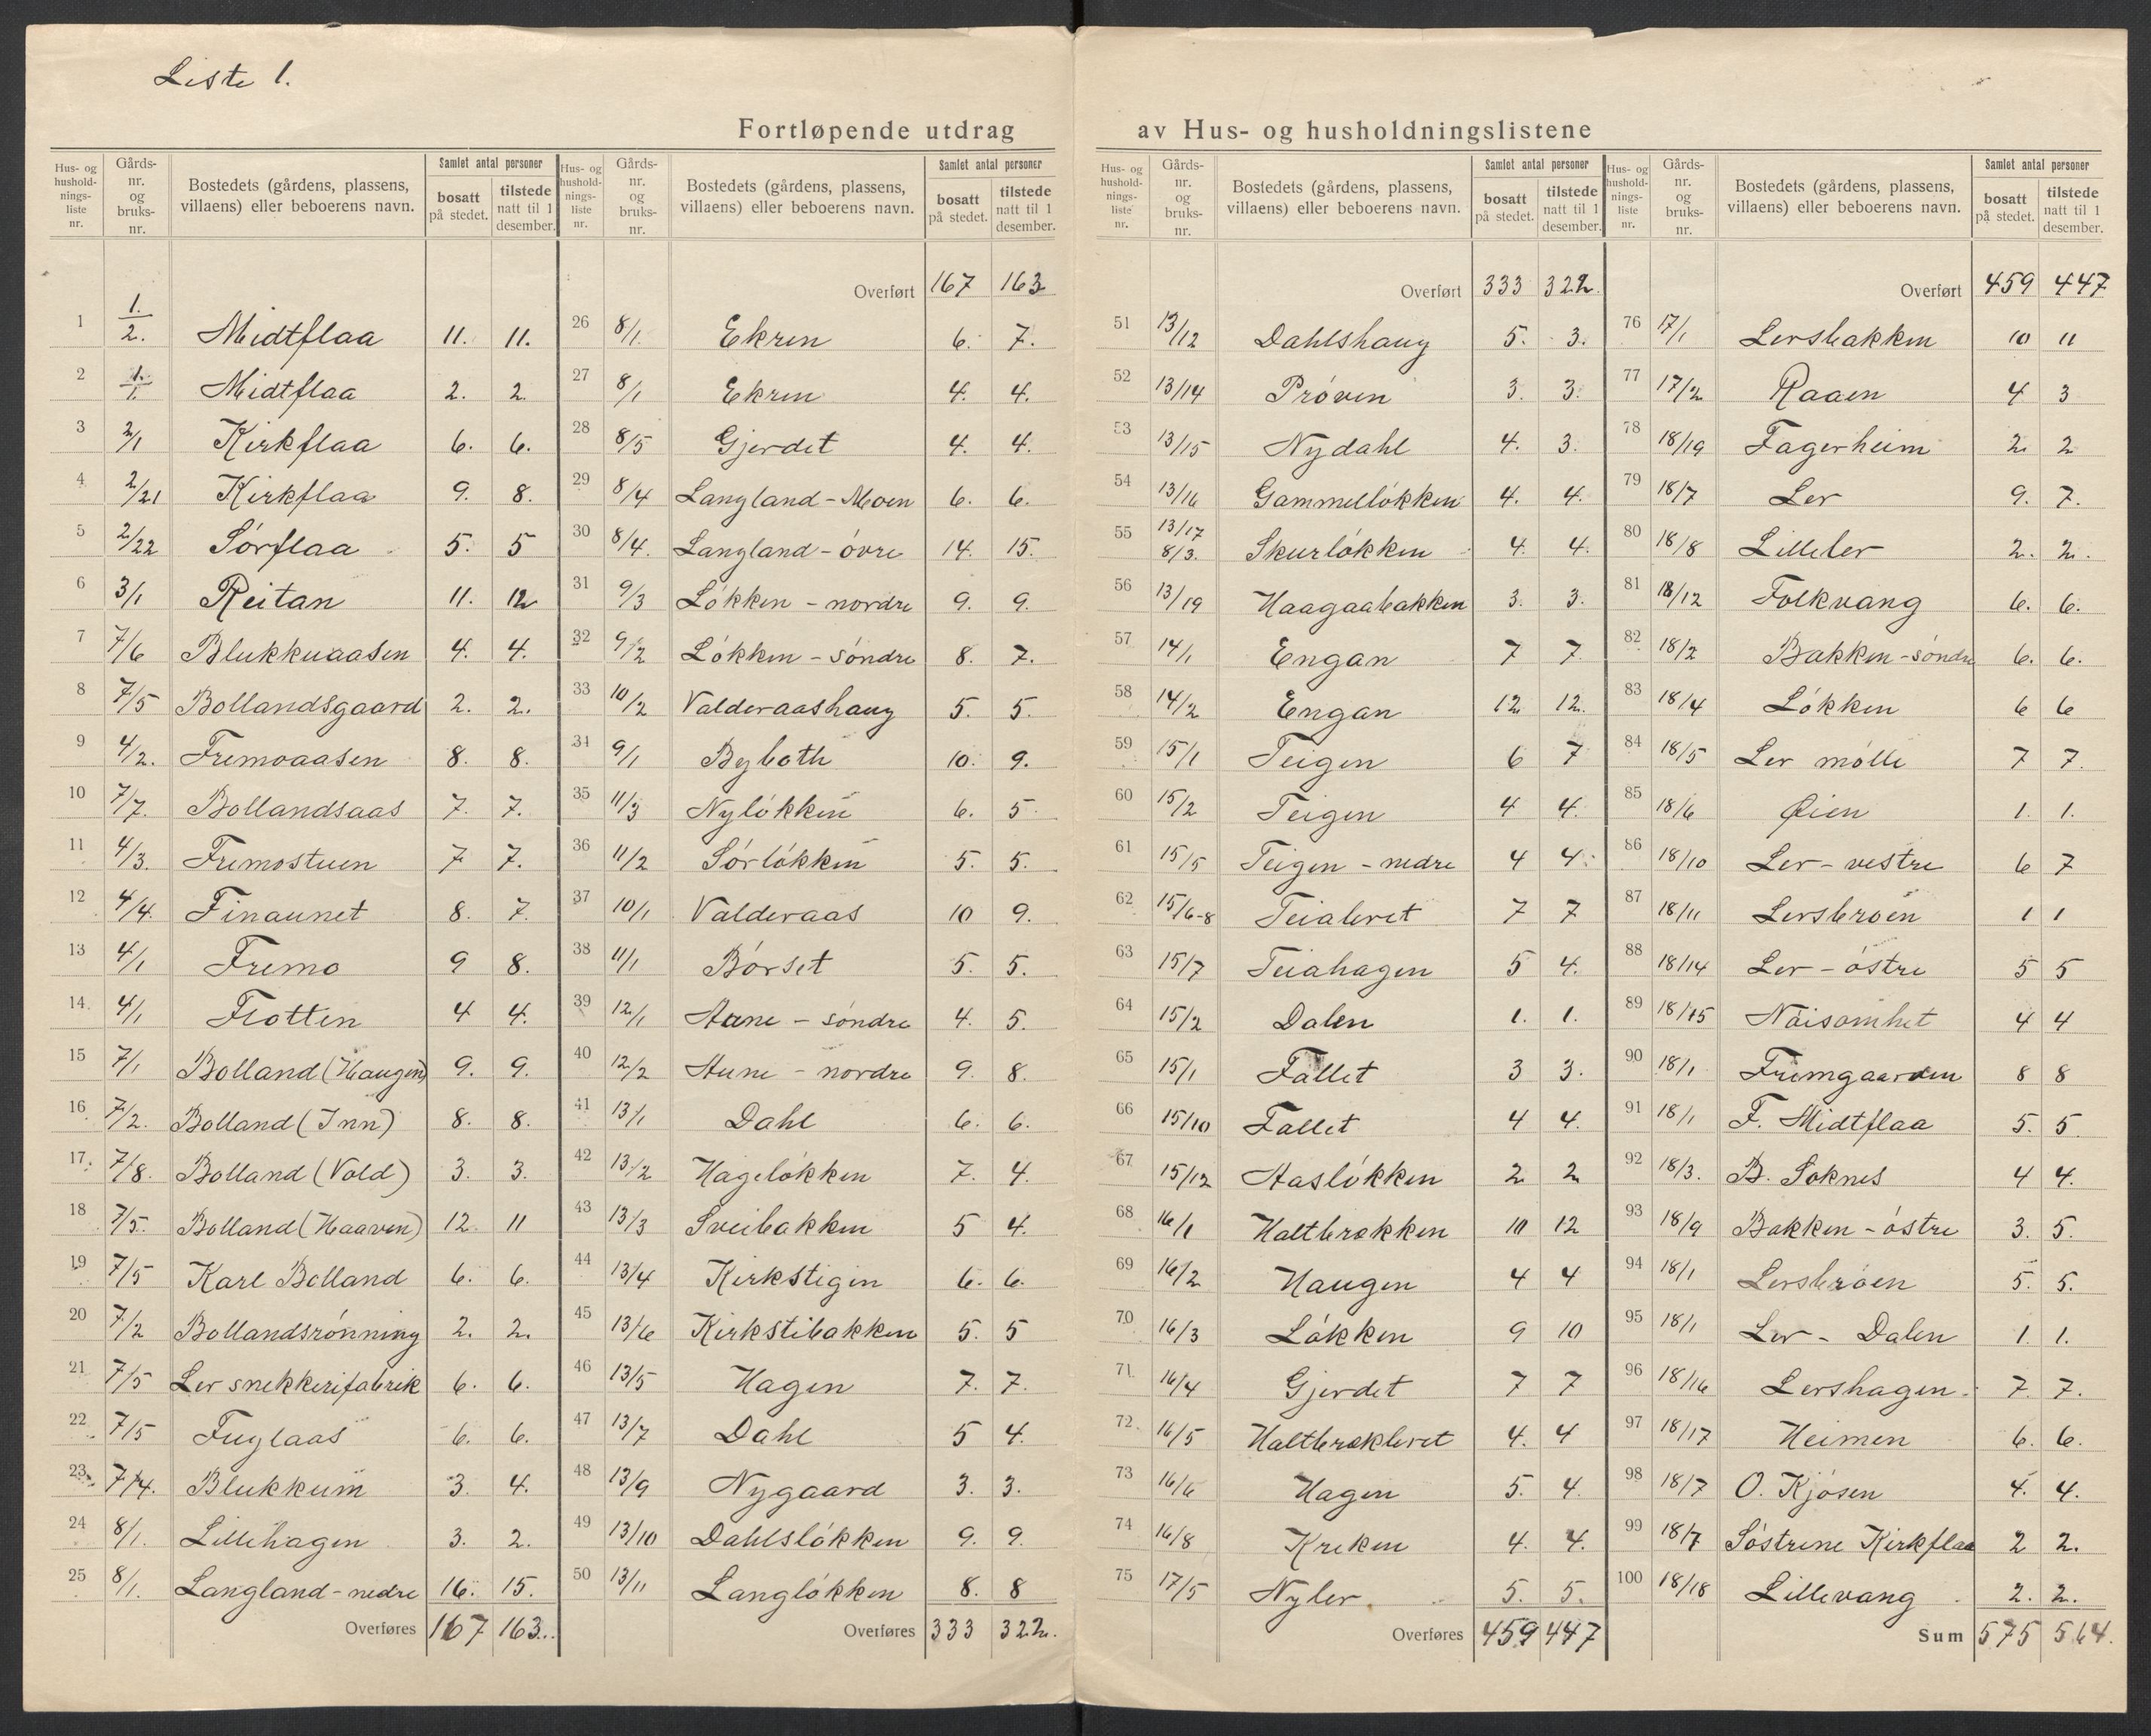 Liste 1.
Fortløpende utdrag av Hus- og husholdningslistene
Hus- og husholdnings-liste nr. | Gårds-nr. og bruks-nr. | Bostedets (gårdens, plassens, villaens) eller beboerens navn. | Samlet antal personer | bosatt på stedet. | tilstede natt til 1 desember.
1 1./2. Midtflaa 11. 11.
2 1./1. Midtflaa 2. 2.
3 2/1 Kirkflaa 6. 6.
4 2/21 Kirkflaa 9. 8.
5 2/22 Sórflaa 5. 5
6 3/1 Reitan 11. 12
7 7/6 Blukkuaasen 4. 4.
8 7/5 Bollandsgaard 2. 2.
9 4/2. Fremoaasen 8. 8.
10 7/7. Bollandsaas 7. 7.
11 4/3. Fremostuen 7 7.
12 4/4. Finaunet 8. 7.
13 4/1 Fremo 9 8.
14 4/1 Flotten 4 4.
15 7/1 Bolland (Haugen) 9. 9.
16 7/2. Bolland (Inn) 8. 8.
17 7/8. Bolland (Vold) 3. 3.
18 7/5. Bolland (Haaven) 12. 11
19 7/5 Karl Bolland 6. 6.
20 7/2 Bollandsrónning 2. 2.
21 7/5 Ler snekkerifabrik 6. 6.
22 7/5 Fuglaas 6. 6.
23 7/4. Blukkum 3. 4.
24 8/1. Lillehagen 3. 2.
25 8/1. Langland - nedre 16. 15.
Overføres 167 163.
Hus- og husholdnings-liste nr. | Gårds-nr. og bruks-nr. | Bostedets (gårdens, plassens, villaens) eller beboerens navn. | Samlet antal personer | bosatt på stedet. | tilstede natt til 1 desember.
Overført 167 163
26 8/1. Ekren 6. 7.
27 8/1 Ekren 4. 4.
28 8/5 Gjerdet 4. 4.
29 8/4 Langland - Moen 6. 6.
30 8/4. Langland - óvre 14. 15.
31 9/3 Lókken - nordre 9. 9.
32 9/2 Lókken - sóndre 8. 7.
33 10/2 Valderaashaug 5. 5.
34 9/1 Byboth 10. 9.
35 11/3 Nylókken 6. 5
36 11/2 Sórlókken 5. 5.
37 10/1 Valderaas 10 9.
38 11/1 Bórset 5. 5.
39 12/1 Aune - sóndre 4. 5.
40 12/2 Aune - nordre 9. 8.
41 13/1 Dahl 6. 6.
42 13/2 Hagelókken 7. 4.
43 13/3 Sveibakken 5 4.
44 13/4 Kirkstigen 6. 6.
45 13/6 Kirkstibakken 5. 5
46 13/5 Hagen 7. 7.
47 13/7 Dahl 5 4.
48 13/9 Nygaard 3. 3.
49 13/10 Dahlslókken 9. 9.
50 13/11 Langlókken 8. 8
Overføres 333 322.
Hus- og husholdnings-liste nr. | Gårds-nr. og bruks-nr. | Bostedets (gårdens, plassens, villaens) eller beboerens navn. | Samlet antal personer | bosatt på stedet. | tilstede natt til 1 desember.
Overført 333 322.
51 13/12 Dahlshaug 5. 3.
52 13/14 Próven 3. 3.
53 13/15 Nydahl 4. 3.
54 13/16 Gammellókken 4. 4.
55 13/17 8/3. Skurlókken 4. 4.
56 13/19 Haagaabakken 3. 3.
57 14/1 Engan 7 7
58 14/2 Engan 12 12.
59 15/1 Teigen 6 7
60 15/2 Teigen 4 4.
61 15/5 Teigen - nedre 4 4.
62 15/6-8 Teialeret 7 7
63 15/7 Teiahagen 5 4.
64 15/2 Dalen 1. 1.
65 15/1 Fallet 3 3.
66 15/10 Fallet 4 4.
67 15/12 Aaslókken 2 2
68 16/1 Haltbrekken 10 12
69 16/2 Haugen 4 4
70 16/3 Lókken 9 10
71 16/4 Gjerdet 7 7
72 16/5 Haltbrekleret 4. 4
73 16/6 Hagen 5. 4.
74 16/8 Kreken 4. 4.
75 17/5 Nyler 5. 5.
Overføres 459 447
Hus- og husholdnings-liste nr. | Gårds-nr. og bruks-nr. | Bostedets (gårdens, plassens, villaens) eller beboerens navn. | Samlet antal personer | bosatt på stedet. | tilstede natt til 1 desember.
Overført 459 447
76 17/1 Lersbakken 10 11
77 17/2 Raaen 4 3
78 18/19 Fagerheim 2. 2
79 18/7 Ler 9. 7.
80 18/8 Lilleler 2. 2.
81 18/12 Folkvang 6. 6.
82 18/2 Bakken - sóndre 6. 6.
83 18/4 Lókken 6 6
84 18/5 Ler mólle 7 7.
85 18/6 Øien 1. 1.
86 18/10 Ler - vestre 6 7
87 18/11 Lersbróen 1 1
88 18/14 Ler - óstre 5 5
89 18/15 Nóisomhet 4 4
90 18/1 Fremgaarden 8 8
91 18/1 F. Midtflaa 5. 5.
92 18/3. B. Soknes 4 4.
93 18/9 Bakken - óstre 3. 5.
94 18/1 Lersbróen 5. 5.
95 18/1 Ler - Dalen 1. 1.
96 18/16 Lershagen 7. 7.
97 18/17 Heimen 6. 6.
98 18/7 O. Kjósen 4. 4.
99 18/7 Sóstrene Kirkflaa 2 2.
100 18/18 Lillevang 2. 2.
Sum 575 564.